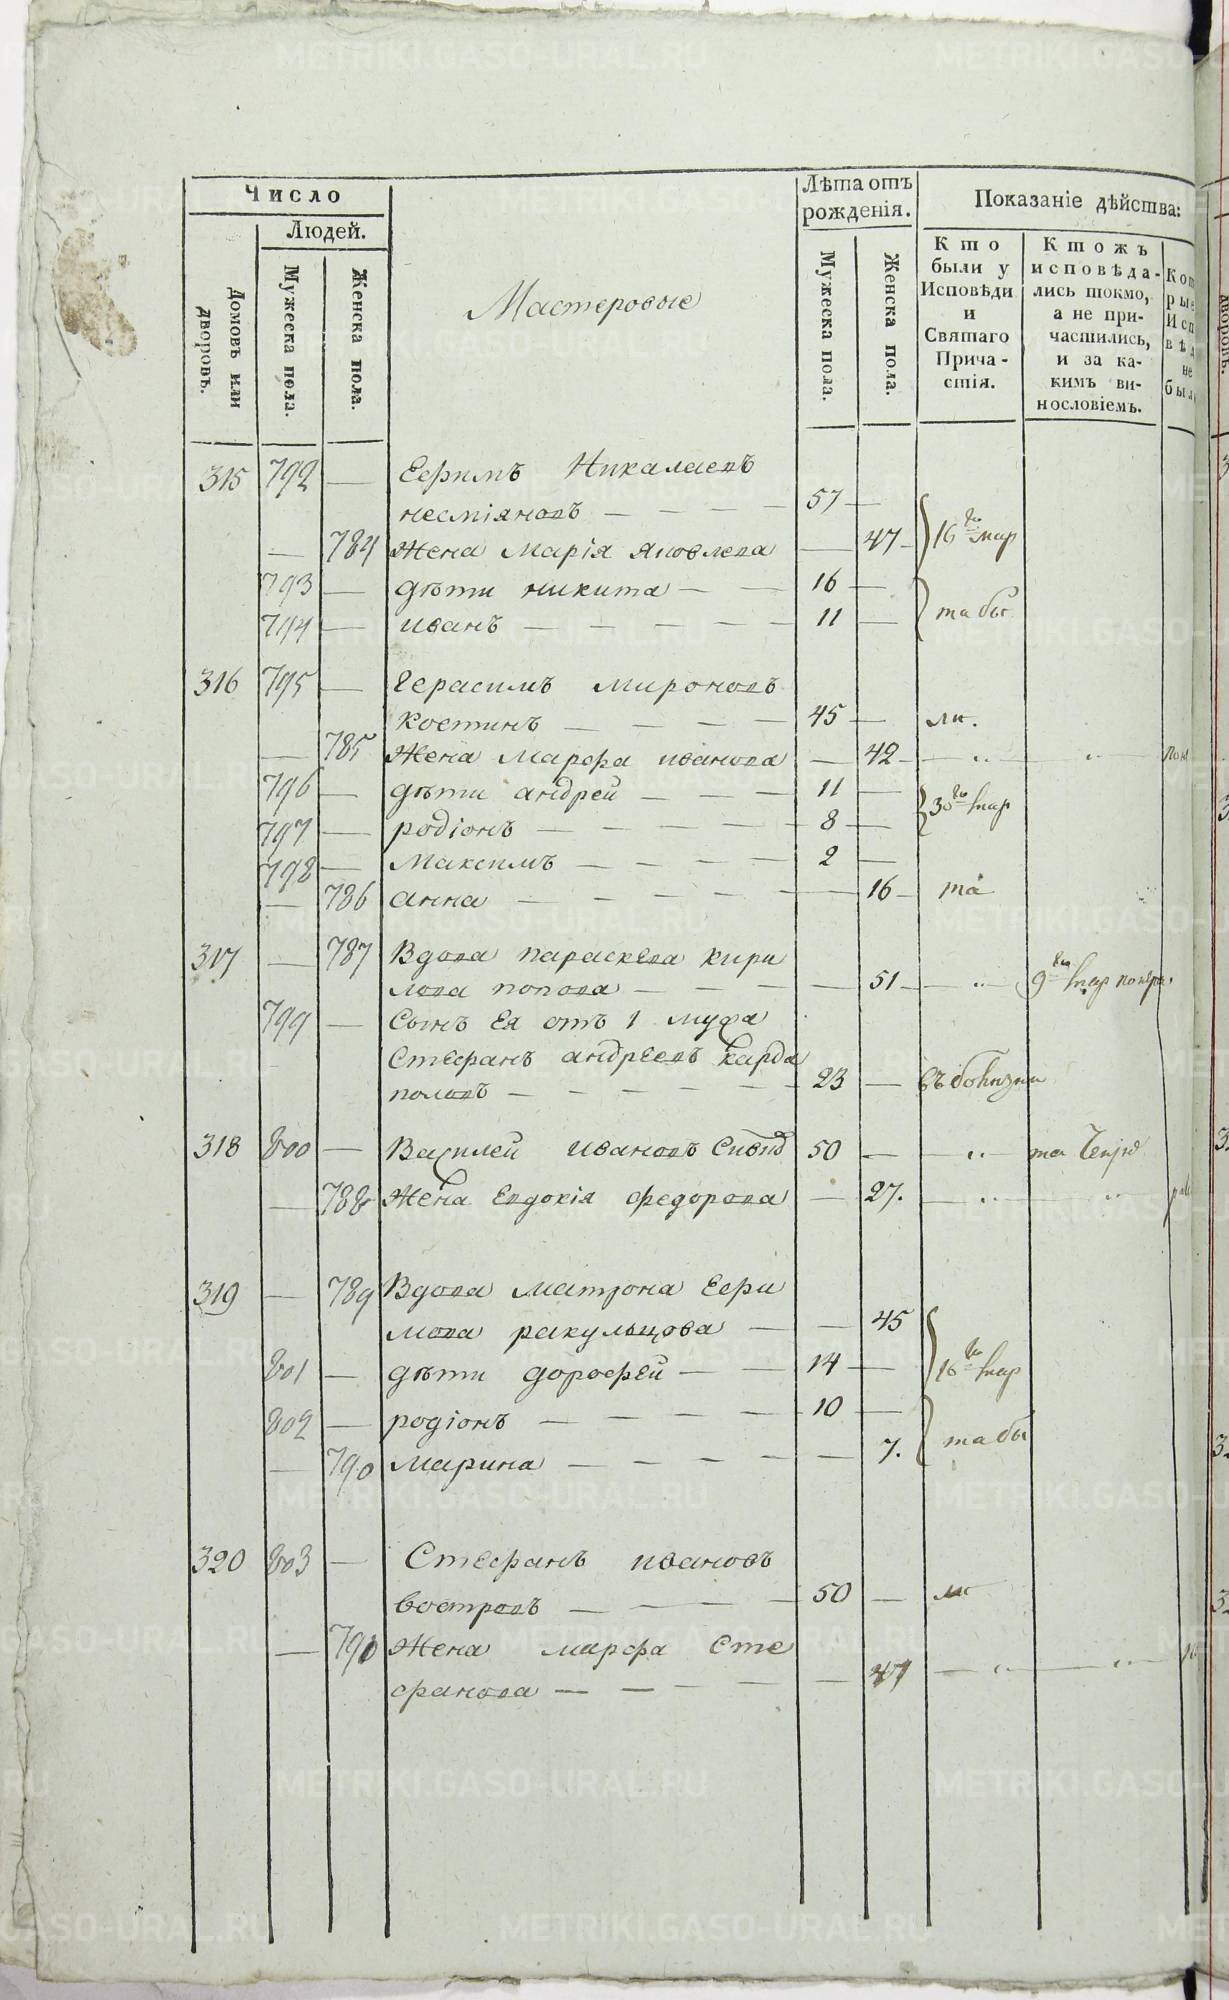 Число
Людей.
Домовъ или дворовъ.
Мужеска пола.
Женска пола.
Мастеровые
Лѣта отъ рожденія.
Мужеска пола.
Женска пола.
Показаніе дѣйства:
Кто были у Исповѣди и Святаго Причастія.
Ктожъ исповѣдались токмо, а не причастились, и за какимъ винословіемъ.
315 792 — Ефимъ Никалаевъ
несміяновъ — — — — 57 —
— 784 Жена Марія Яковлева — 47 16 мар
793 — дѣти никита — — 16 —
794 — иванъ — — — — — 11 — та бы
316 795 — Герасимъ мироновъ
костинъ — — — — 45 —
— 785 Жена Марфа иванова — 42 — „ „
796 — дѣти андрей — — — 11 — 30 мар
797 — родіонъ — — — — — 8 —
798 — Максимъ — — — — 2 —
— 786 анна — — — — — — 16 та
317 — 787 Вдова параскева кири
лова попова — — — — — 51 — „ 9 мар
799 — Сынъ Ея отъ 1 мужа
Стефанъ андреевъ карда
половъ — — — — — 23 —
318 800 — Василей ивановъ 50 — — „ — та
— 788 Жена Евдокія федорова — 27. — „ „
319 — 789 Вдова Матрона Ефи
мова ракульцова — — 45
801 — дѣти дорофей — — 14 — 16 мар
802 — родіонъ — — — — 10 —
— 790 марина — — — — — 7. та бы
320 803 — Стефанъ ивановъ
востровъ — — — — 50 —
— 791 Жена марфа Сте
фанова — — — — — 47 — „ — „ —